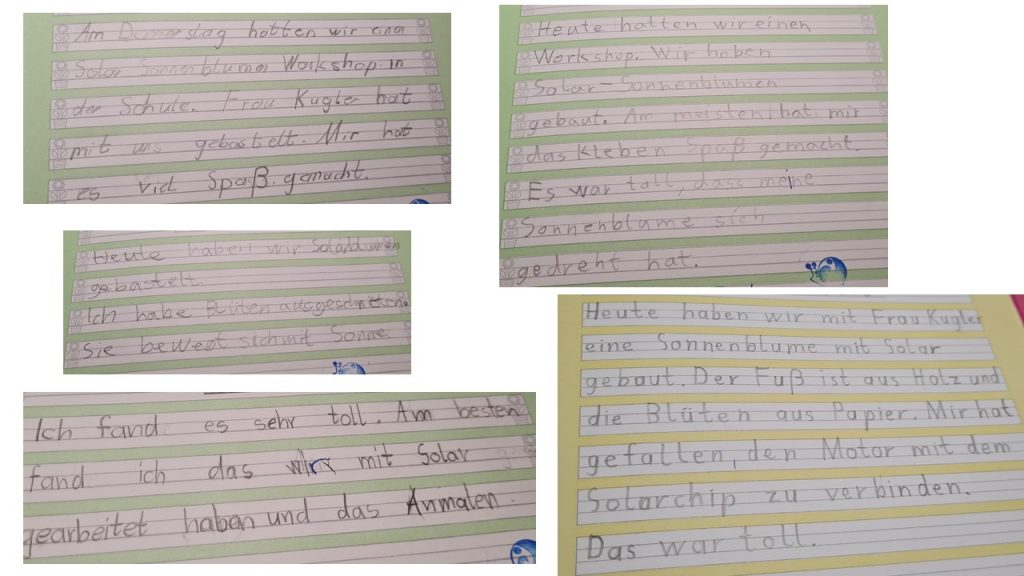 Am Donnerstag hatten wir einen
Solar Sonnenblumen Workshop in
der Schule. Frau Kugler hat
mit uns gebastelt. Mir hat
es viel Spaß gemacht.
Heute hatten wir einen
Workshop. Wir haben
Solar-Sonnenblumen
gebaut. Am meisten hat mir
das Kleben Spaß gemacht.
Es war toll, dass meine
Sonnenblume sich
gedreht hat.
Heute haben wir Solarblumen
gebastelt.
Ich habe Blüten ausgeschnitten.
Sie bewegt sich mit Sonne
Ich fand es sehr toll. Am besten
fand ich das wir mit Solar
gearbeitet haben und das Anmalen.
Heute haben wir mit Frau Kugler
eine Sonnenblume mit Solar
gebaut. Der Fuß ist aus Holz und
die Blüten aus Papier. Mir hat
gefallen, den Motor mit dem
Solarchip zu verbinden.
Das war toll.